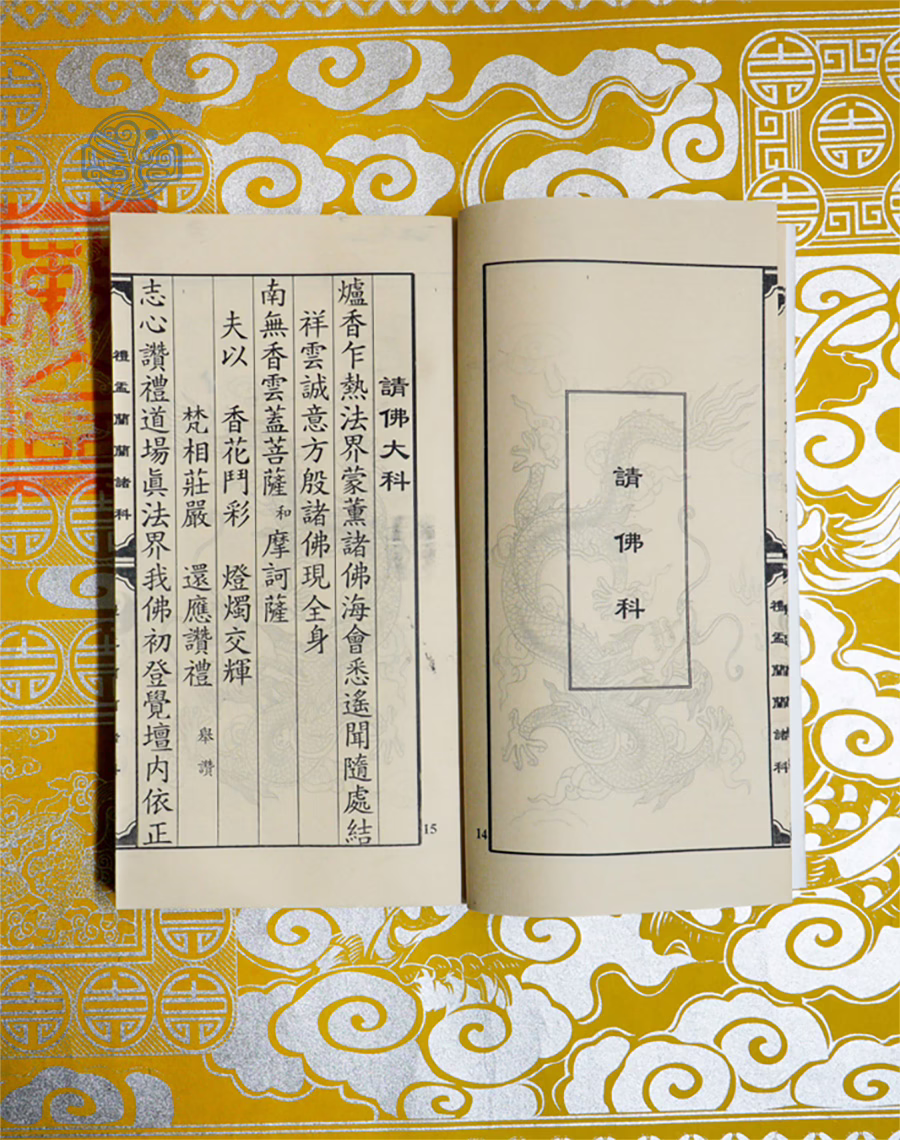 請佛科
14
請佛大科
爐香乍熱法界蒙薰諸佛海會悉遙聞隨處結
祥雲誠意方殷諸佛現全身
南無香雲蓋菩薩 和 摩訶薩
夫以 香花鬥彩 燈燭交輝
梵相莊嚴 還應讚禮 舉讚
志心讚禮道場眞法界我佛初登覺壇內依正
禮盂蘭蘭諸科
15
禮盂蘭蘭諸科